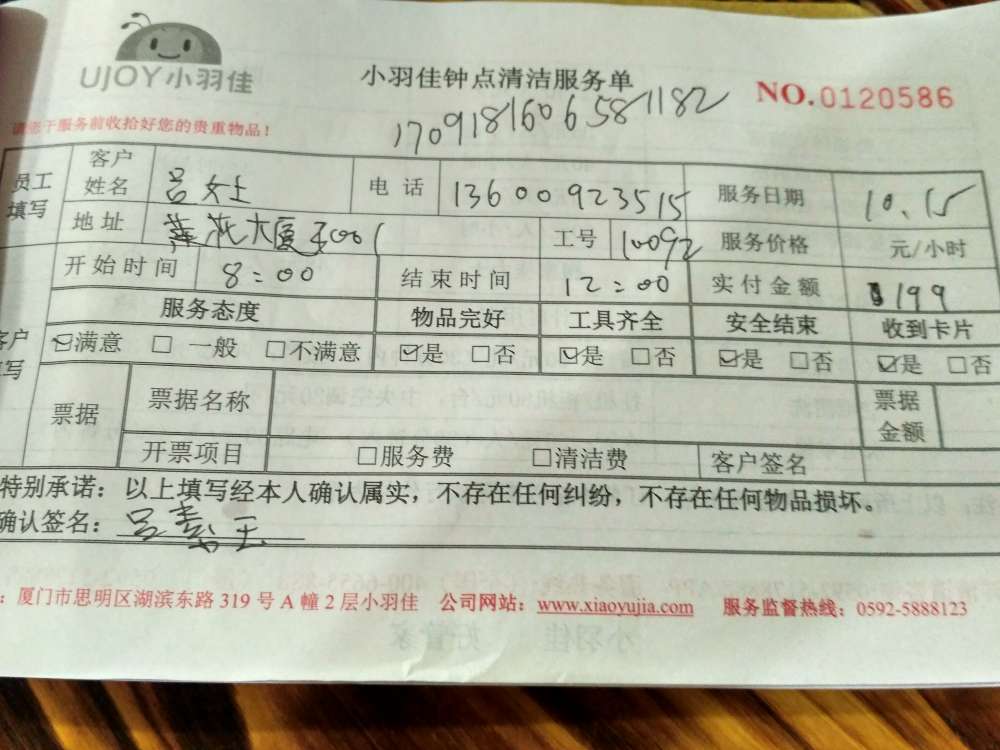 UJOY小羽佳
小羽佳钟点清洁服务单
NO.0120586
1709181606581182
请您于服务前收拾好您的贵重物品！
员工填写 客户姓名 吕女士 电话 13600923515 服务日期 10.15
地址 莲花大厦 工号 10092 服务价格 元/小时
开始时间 8:00 结束时间 12:00 实付金额 199
服务态度 物品完好 工具齐全 安全结束 收到卡片
☑满意 □一般 □不满意 ☑是 □否 ☑是 □否 ☑是 □否 ☑是 □否
票据 票据名称 票据金额
开票项目 □服务费 □清洁费 客户签名
特别承诺：以上填写经本人确认属实，不存在任何纠纷，不存在任何物品损坏。
确认签名：吕
：厦门市思明区湖滨东路 319 号 A 幢 2 层小羽佳 公司网站：www.xiaoyujia.com 服务监督热线：0592-5888123